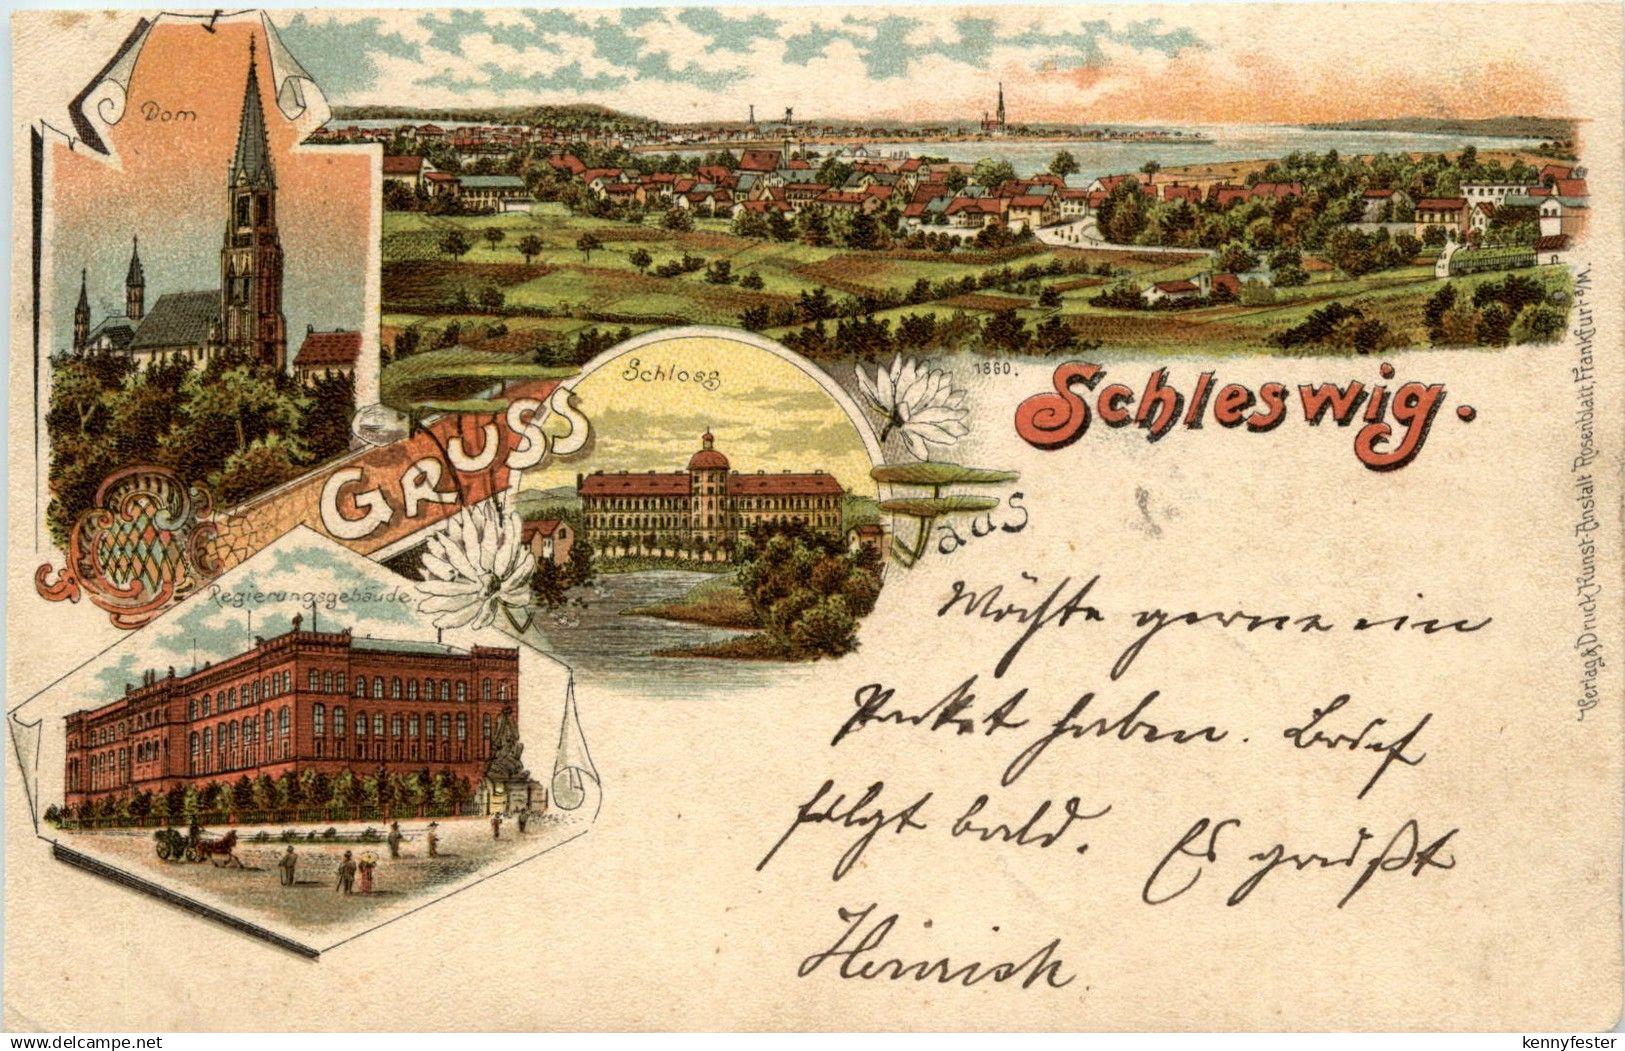 Dom
Schloss
1860.
Schleswig.
GRUSS
aus
Regierungsgebäude.
Möchte gerne ein
Paket haben. Brief
folgt bald. Es grüßt
Heinrich
Verlag & Druck Kunst-Anstalt Rosenblatt, Frankfurt a/M.
www.delcampe.net
kennyfester